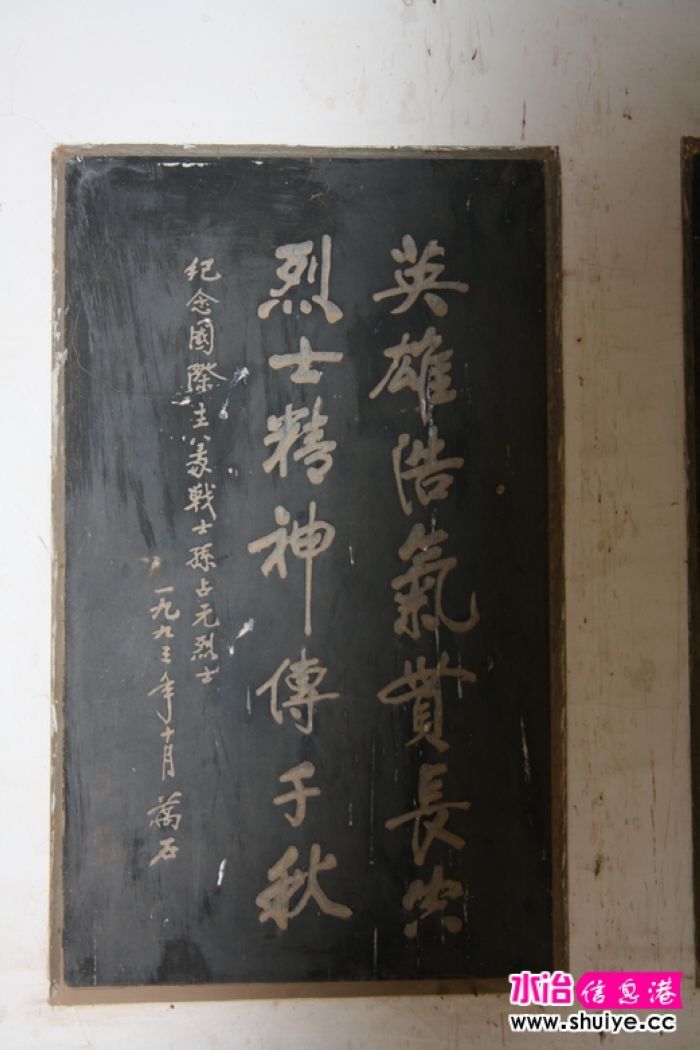 英雄浩氣貫長空
烈士精神傳千秋
紀念國際主义戰士孫占元烈士
一九九三年十月 萬石
水冶信息港
www.shuiye.cc